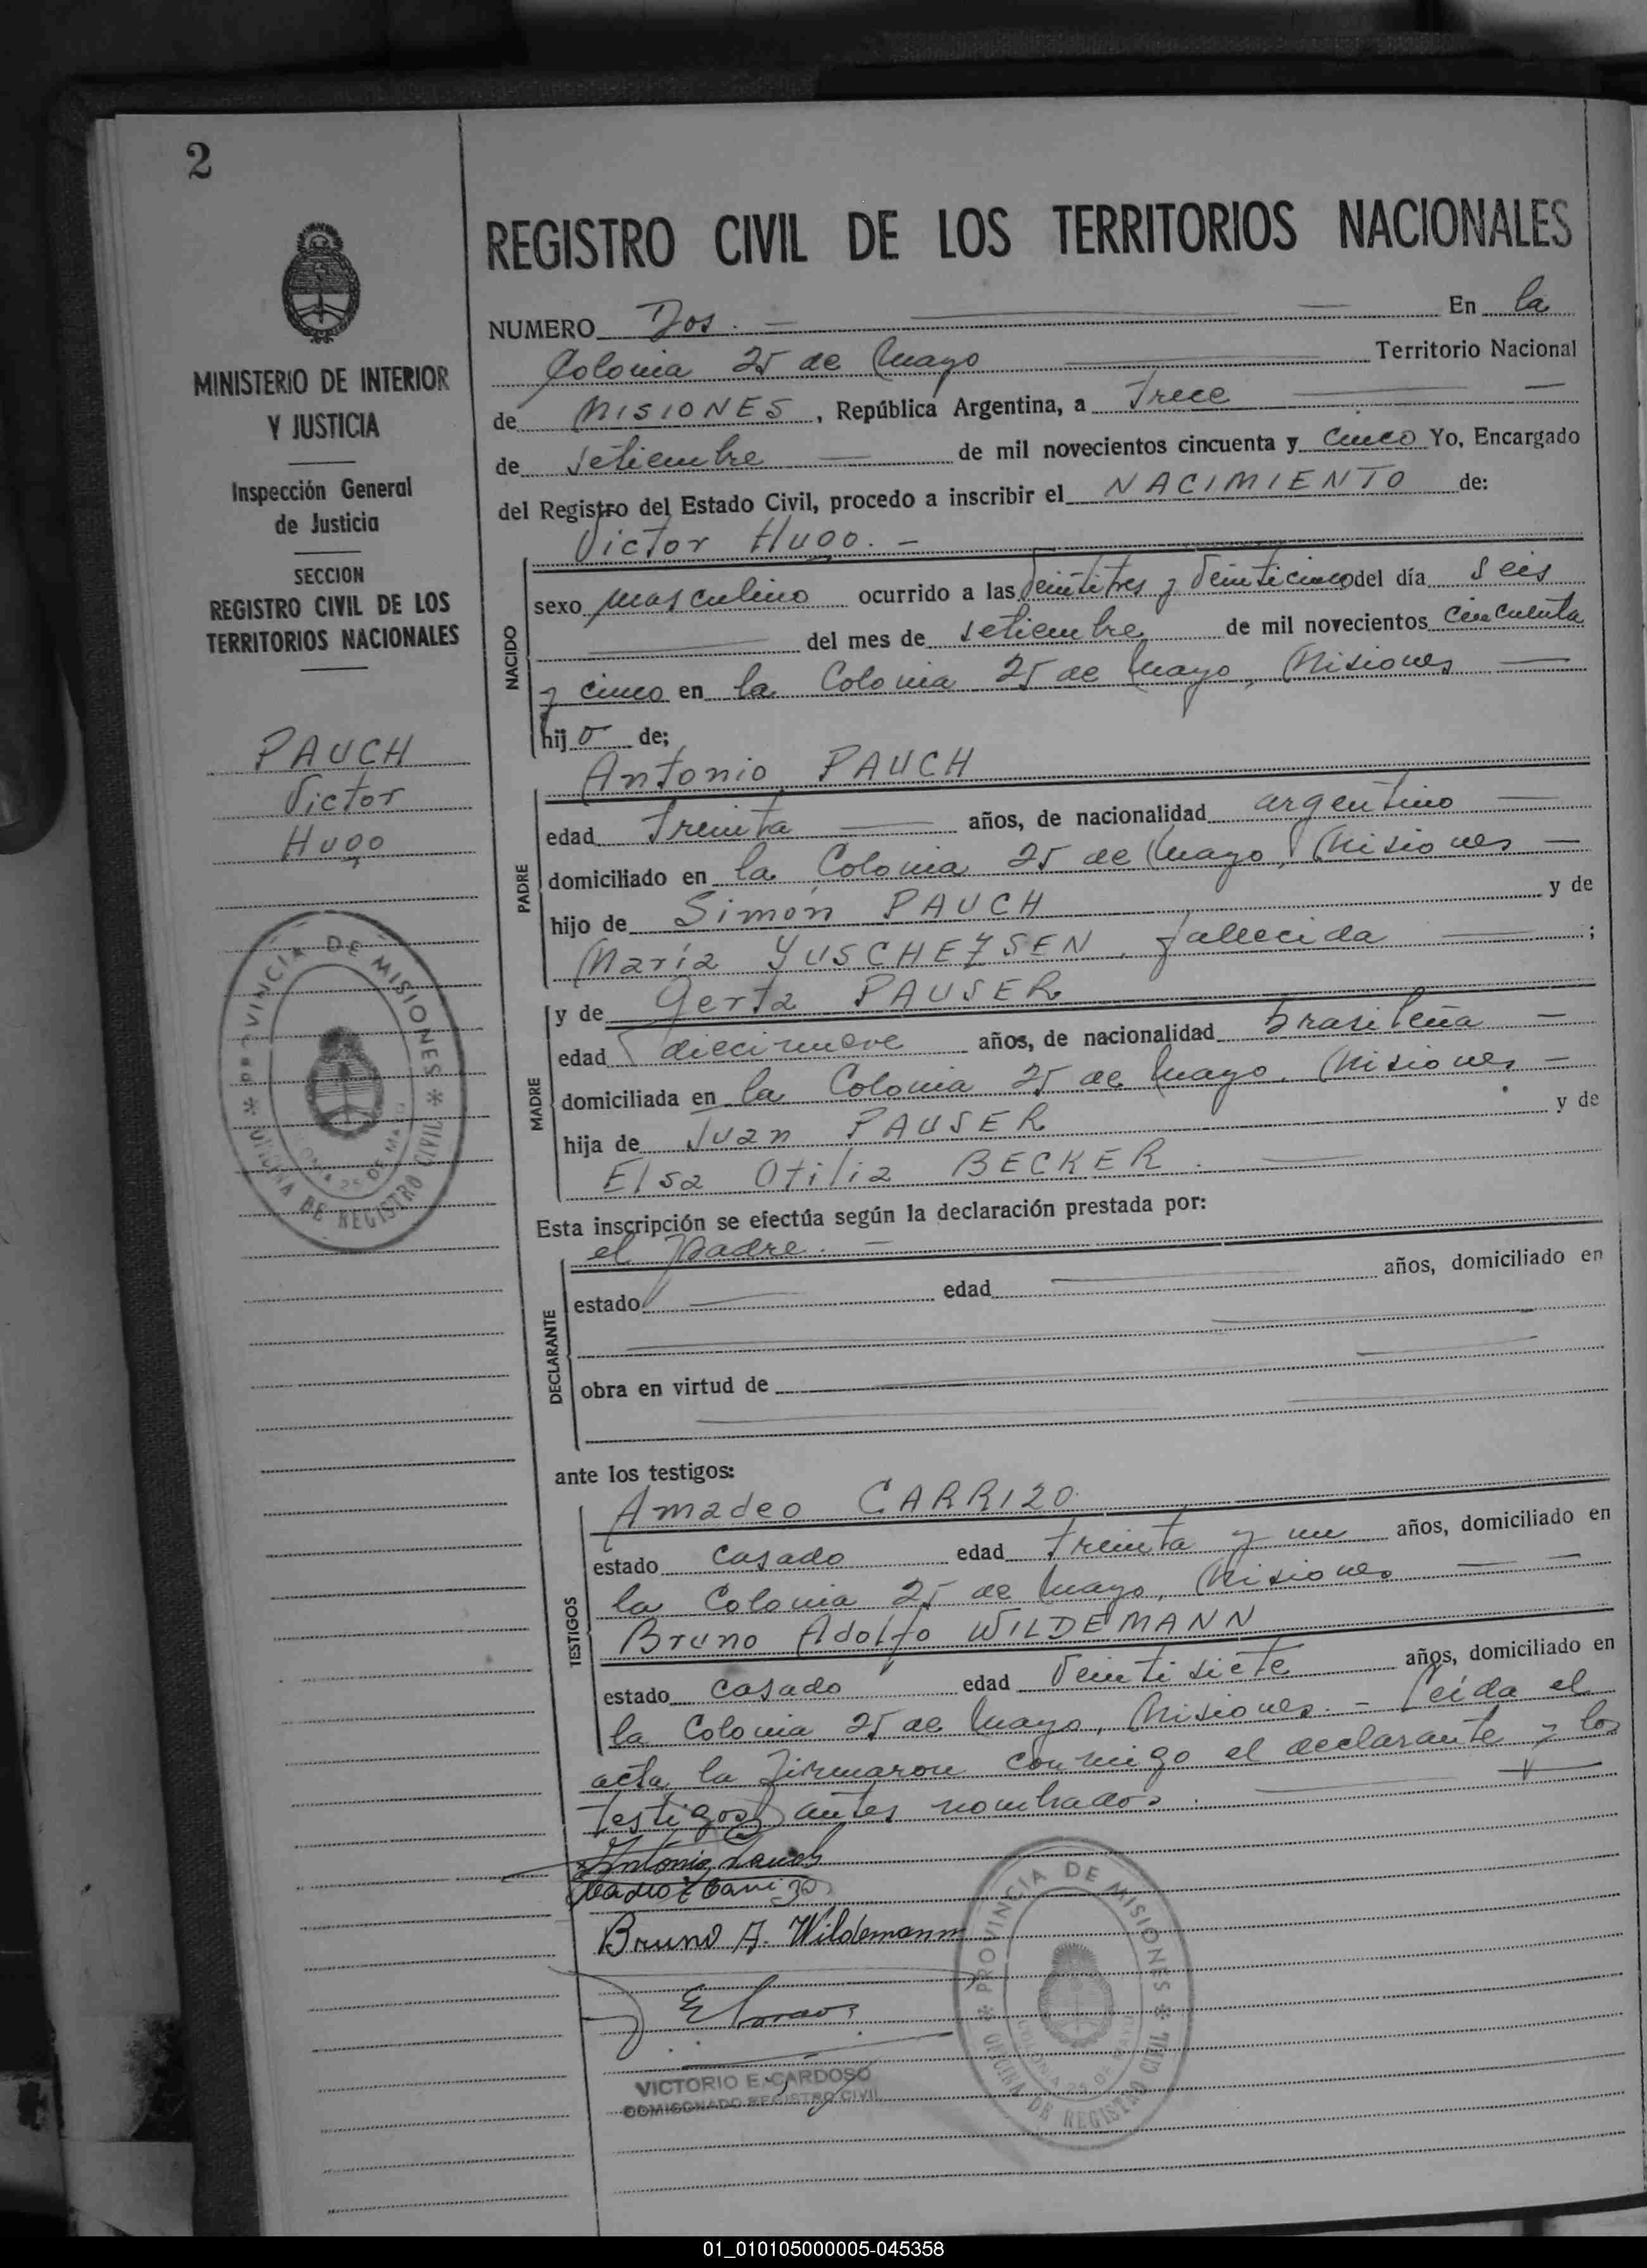 2
MINISTERIO DE INTERIOR
Y JUSTICIA
Inspección General
de Justicia
SECCION
REGISTRO CIVIL DE LOS
TERRITORIOS NACIONALES
PAUCH
Victor
Hugo
PROVINCIA DE MISIONES
OFICINA DE REGISTRO CIVIL
REGISTRO CIVIL DE LOS TERRITORIOS NACIONALES
NUMERO Dos. — En la
Colonia 25 de Mayo Territorio Nacional
de MISIONES, República Argentina, a Trece
de setiembre de mil novecientos cincuenta y cinco Yo, Encargado
del Registro del Estado Civil, procedo a inscribir el NACIMIENTO de:
Victor Hugo. —
NACIDO
sexo masculino ocurrido a las veintitres y veinticinco del día seis
del mes de setiembre de mil novecientos cincuenta
y cinco en la Colonia 25 de Mayo, Misiones
hijo de;
Antonio PAUCH
PADRE
edad Treinta años, de nacionalidad argentino
domiciliado en la Colonia 25 de Mayo, Misiones
hijo de Simón PAUCH y de
María YUSCHEZSEN, fallecida ;
MADRE
y de Gerta PAUSER
edad diecinueve años, de nacionalidad brasileña
domiciliada en la Colonia 25 de Mayo, Misiones
hija de Juan PAUSER y de
Elsa Otilia BECKER.
Esta inscripción se efectúa según la declaración prestada por:
el padre. —
DECLARANTE
estado edad años, domiciliado en
obra en virtud de
ante los testigos:
TESTIGOS
Amadeo CARRIZO
estado casado edad treinta y un años, domiciliado en
la Colonia 25 de Mayo, Misiones
Bruno Adolfo WILDEMANN
estado casado edad veintisiete años, domiciliado en
la Colonia 25 de Mayo, Misiones. — Leída el
acta la firmaron conmigo el declarante y los
testigos antes nombrados.
Antonio Pauch
Bruno A. Wildemann
VICTORIO E. CARDOSO
COMISIONADO REGISTRO CIVIL
PROVINCIA DE MISIONES
COLONIA 25 DE MAYO
OFICINA DE REGISTRO CIVIL
01_010105000005-045358